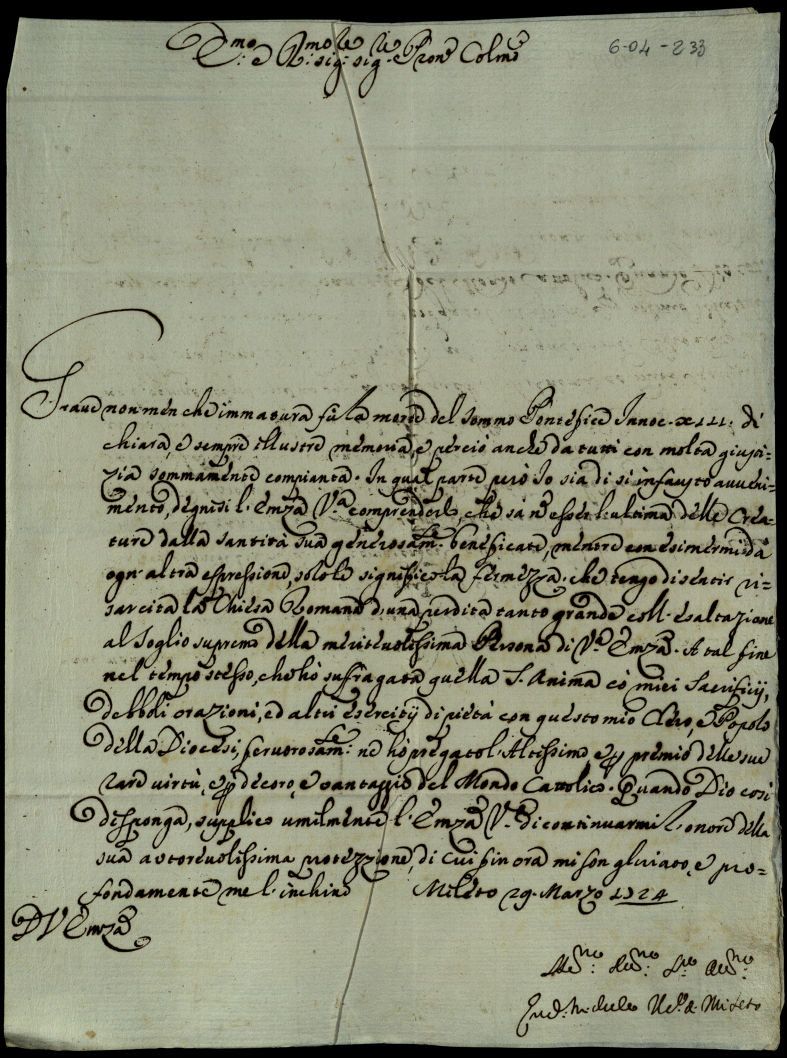 Em:mo e R:mo sig:re sig:re e Pron Colmo
6-04-233
Grave non men che immatura fù la morte del sommo Pontefice Innoc. XIII. di
chiara, e sempre illustre memoria, e perciò anche da tutti con molta giusti=
zia sommamente compianta. In qual parte però Io sia di sì infausto avveni=
mento, degnisi l'Emza Va comprenderlo, che sà no esser l'ultima delle Crea=
ture dalla santità sua generosam:te beneficate, mentre con esimermi da
ogn'altra espressione, solo le significo la fermezza, che tengo di sentir ri=
sarcita la Chiesa Romana d'una perdita tanto grande coll'esaltazione
al Soglio supremo della meritevolissima Persona di Va Emza. A tal fine
nel tempo stesso, che hò suffragata quella S. Anima co' miei Sacrificij,
debboli orazioni, ed altri esercitij di pietà con questo mio Clero, e Popolo
della Diocesi, fervorosam:te ne hò pregato l'Altissimo e p premio delle sue
rare virtù, e p decoro, e vantaggio del Mondo Cattolico. Quando Dio così
disponga, supplico umilmente l'Emza Va di continuarmi l'onore della
sua autorevolissima protezzione, di cui fin ora mi son gloriato, e pro=
fondamente me l'inchino Mileto 29. Marzo 1724
D V Emza
Ve:o di Mileto